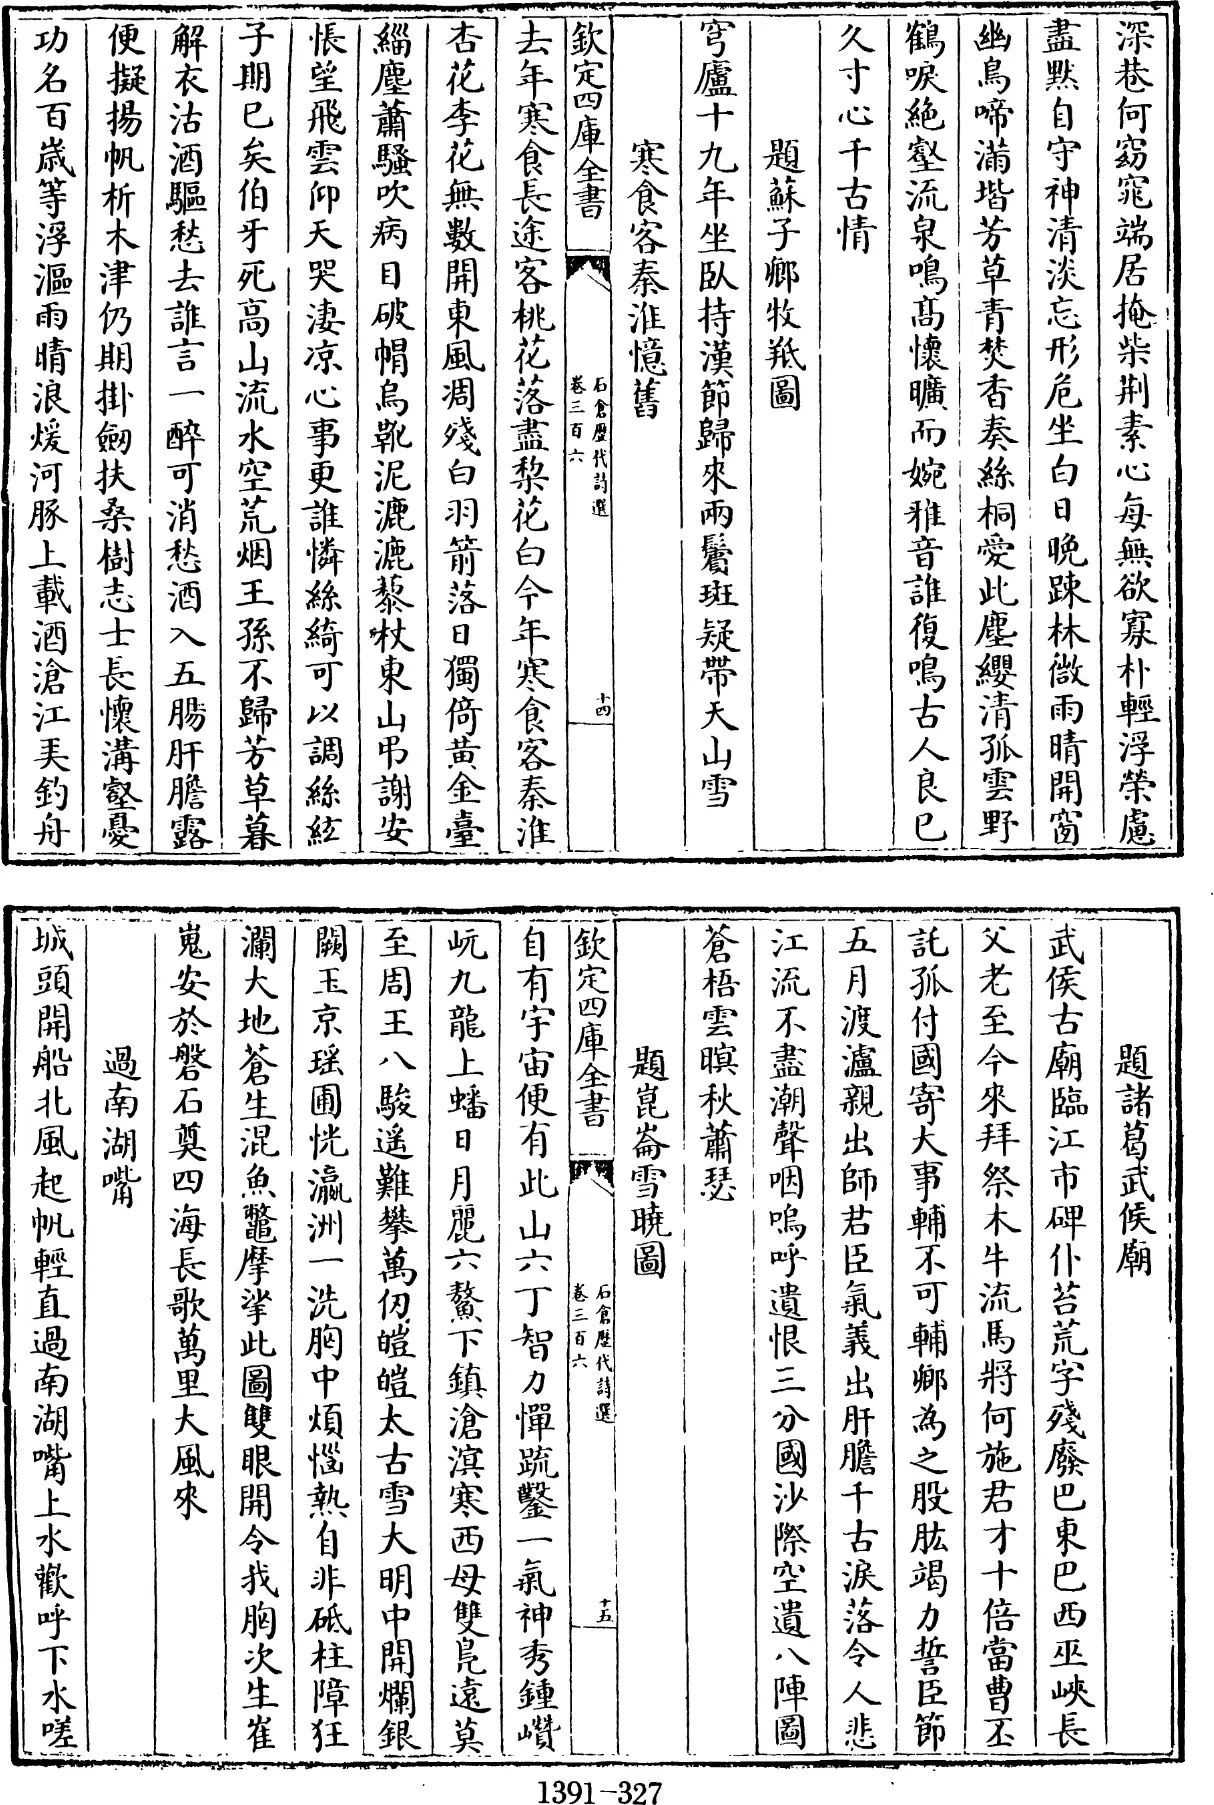 深巷何窈窕端居掩柴荆素心每無欲寡朴輕浮榮慮
盡黙自守神清淡忘形危坐白日晚踈林微雨晴開窗
幽鳥啼滿堦芳草青焚香奏絲桐愛此塵纓清孤雲野
鶴唳絶壑流泉鳴髙懷曠而婉雅音誰復鳴古人良已
久寸心千古情
題蘇子卿牧羝圖
穹廬十九年坐臥持漢節歸來兩鬢斑疑帶天山雪
寒食客秦淮憶舊
欽定四庫全書
石倉歷代詩選
卷三百六
十四
去年寒食長途客桃花落盡梨花白今年寒食客秦淮
杏花李花無數開東風凋殘白羽箭落日獨倚黄金臺
緇塵蕭騷吹病目破帽烏靴泥漉漉藜杖東山弔謝安
悵望飛雲仰天哭淒凉心事更誰憐絲綺可以調絲絃
子期已矣伯牙死高山流水空荒烟王孫不歸芳草暮
解衣沽酒驅愁去誰言一醉可消愁酒入五腸肝膽露
便擬揚帆析木津仍期掛劒扶桑樹志士長懷溝壑憂
功名百歳等浮漚雨晴浪煖河豚上載酒滄江美釣舟
題諸葛武侯廟
武侯古廟臨江市碑仆苔荒字殘廢巴東巴西巫峽長
父老至今來拜祭木牛流馬將何施君才十倍當曹丕
託孤付國寄大事輔不可輔卿為之股肱竭力誓臣節
五月渡瀘親出師君臣氣義出肝膽千古淚落令人悲
江流不盡潮聲咽嗚呼遺恨三分國沙際空遺八陣圖
蒼梧雲暝秋蕭瑟
題崑崙雪曉圖
欽定四庫全書
石倉歷代詩選
卷三百六
十五
自有宇宙便有此山六丁智力憚疏鑿一氣神秀鍾巑
岏九龍上蟠日月麗六鰲下鎮滄溟寒西母雙鳧遠莫
至周王八駿遥難攀萬仭皚皚太古雪大明中開爛銀
闕玉京瑶圃恍瀛洲一洗胸中煩惱熱自非砥柱障狂
瀾大地蒼生混魚鼈摩挲此圖雙眼開令我胸次生崔
嵬安於磐石奠四海長歌萬里大風來
過南湖嘴
城頭開船北風起帆輕直過南湖嘴上水歡呼下水嗟
1391-327